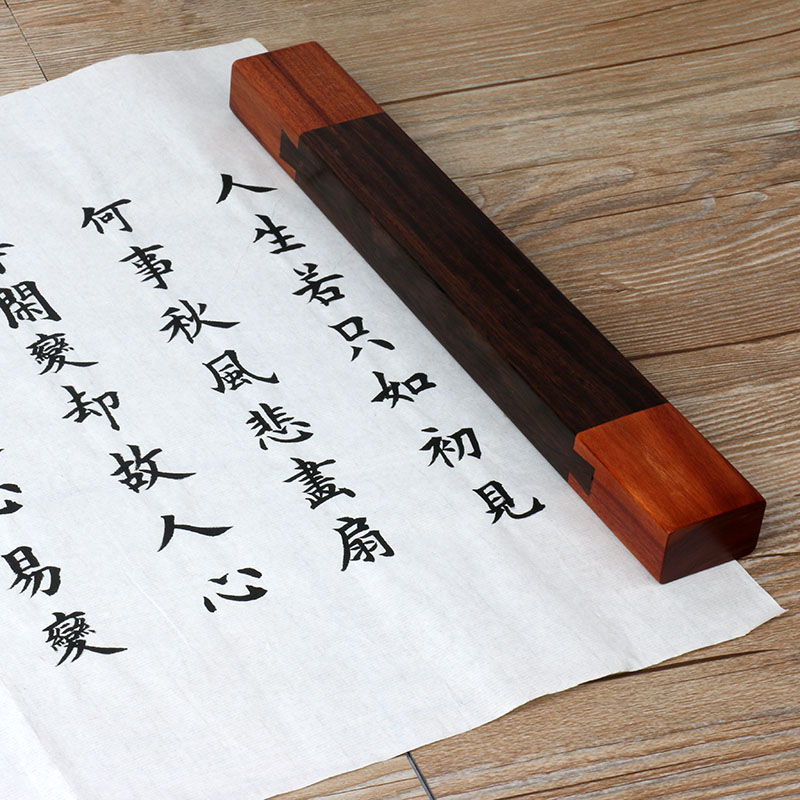 人生若只如初見
何事秋風悲畫扇
閑變却故人心
心易變